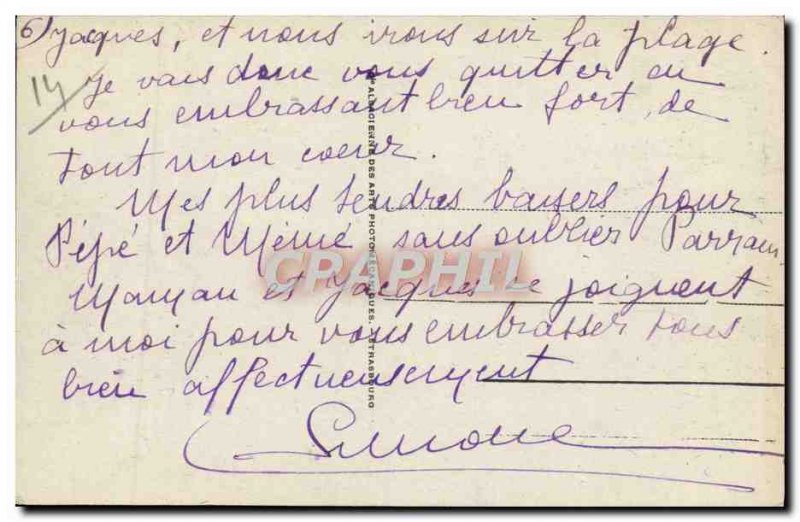 6) Jacques, et nous irons sur la plage.
14
Je vais donc vous quitter en
vous embrassant bien fort, de
tout mon coeur.
Mes plus tendres baisers pour
Pépé et Mémé sans oublier Parrain
Maman et Jacques se joignent
à moi pour vous embrasser tous
bien affectueusement
Simone
ALSACIENNE DES ARTS PHOTOMÉCANIQUES, STRASBOURG
CPAPHIL